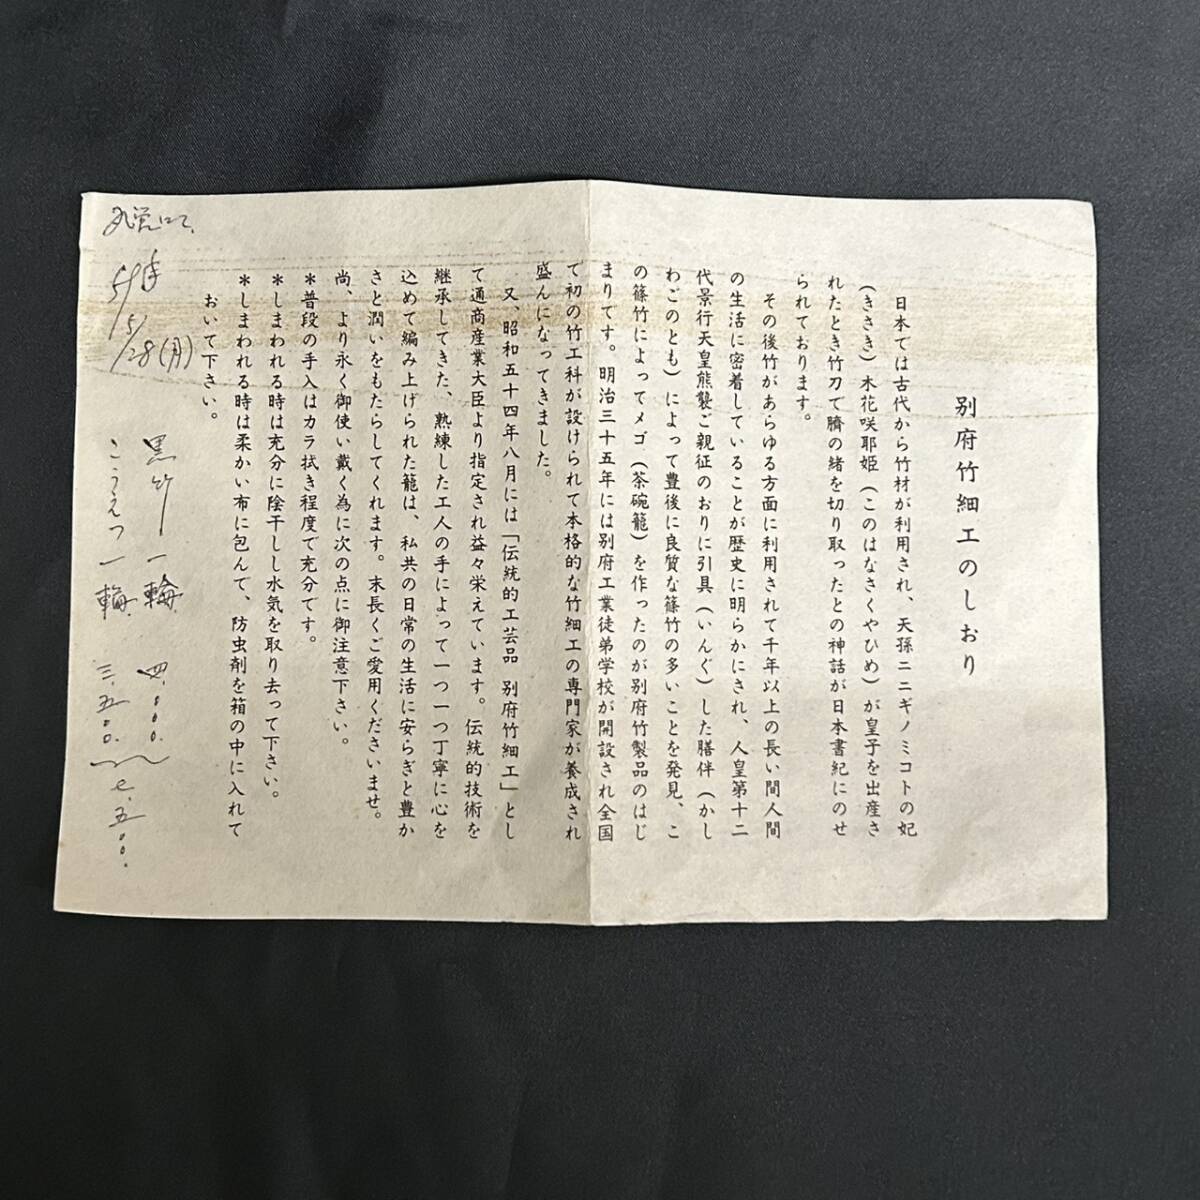 別府竹細工のしおり
日本では古代から竹材が利用され、天孫ニニギノミコトの妃
（きさき）木花咲耶姫（このはなさくやひめ）が皇子を出産さ
れたとき竹刀で臍の緒を切り取ったとの神話が日本書紀にのせ
られております。
その後竹があらゆる方面に利用されて千年以上の長い間人間
の生活に密着していることが歴史に明らかにされ、人皇第十二
代景行天皇熊襲ご親征のおりに引具（いんぐ）した膳伴（かし
わごのとも）によって豊後に良質な篠竹の多いことを発見、こ
の篠竹によってメゴ（茶碗籠）を作ったのが別府竹製品のはじ
まりです。明治三十五年には別府工業徒弟学校が開設され全国
で初の竹工科が設けられて本格的な竹細工の専門家が養成され
盛んになってきました。
又、昭和五十四年八月には「伝統的工芸品 別府竹細工」とし
て通商産業大臣より指定され益々栄えています。伝統的技術を
継承してきた、熟練した工人の手によって一つ一つ丁寧に心を
込めて編み上げられた籠は、私共の日常の生活に安らぎと豊か
さと潤いをもたらしてくれます。末長くご愛用くださいませ。
尚、より永く御使い戴く為に次の点に御注意下さい。
＊普段の手入はカラ拭き程度で充分です。
＊しまわれる時は充分に陰干しし水気を取り去って下さい。
＊しまわれる時は柔かい布に包んで、防虫剤を箱の中に入れて
おいて下さい。
黒竹 一輪 四.〇〇〇.
こうえつ 一輪 三.五〇〇.
にて、
59年5/28(月)